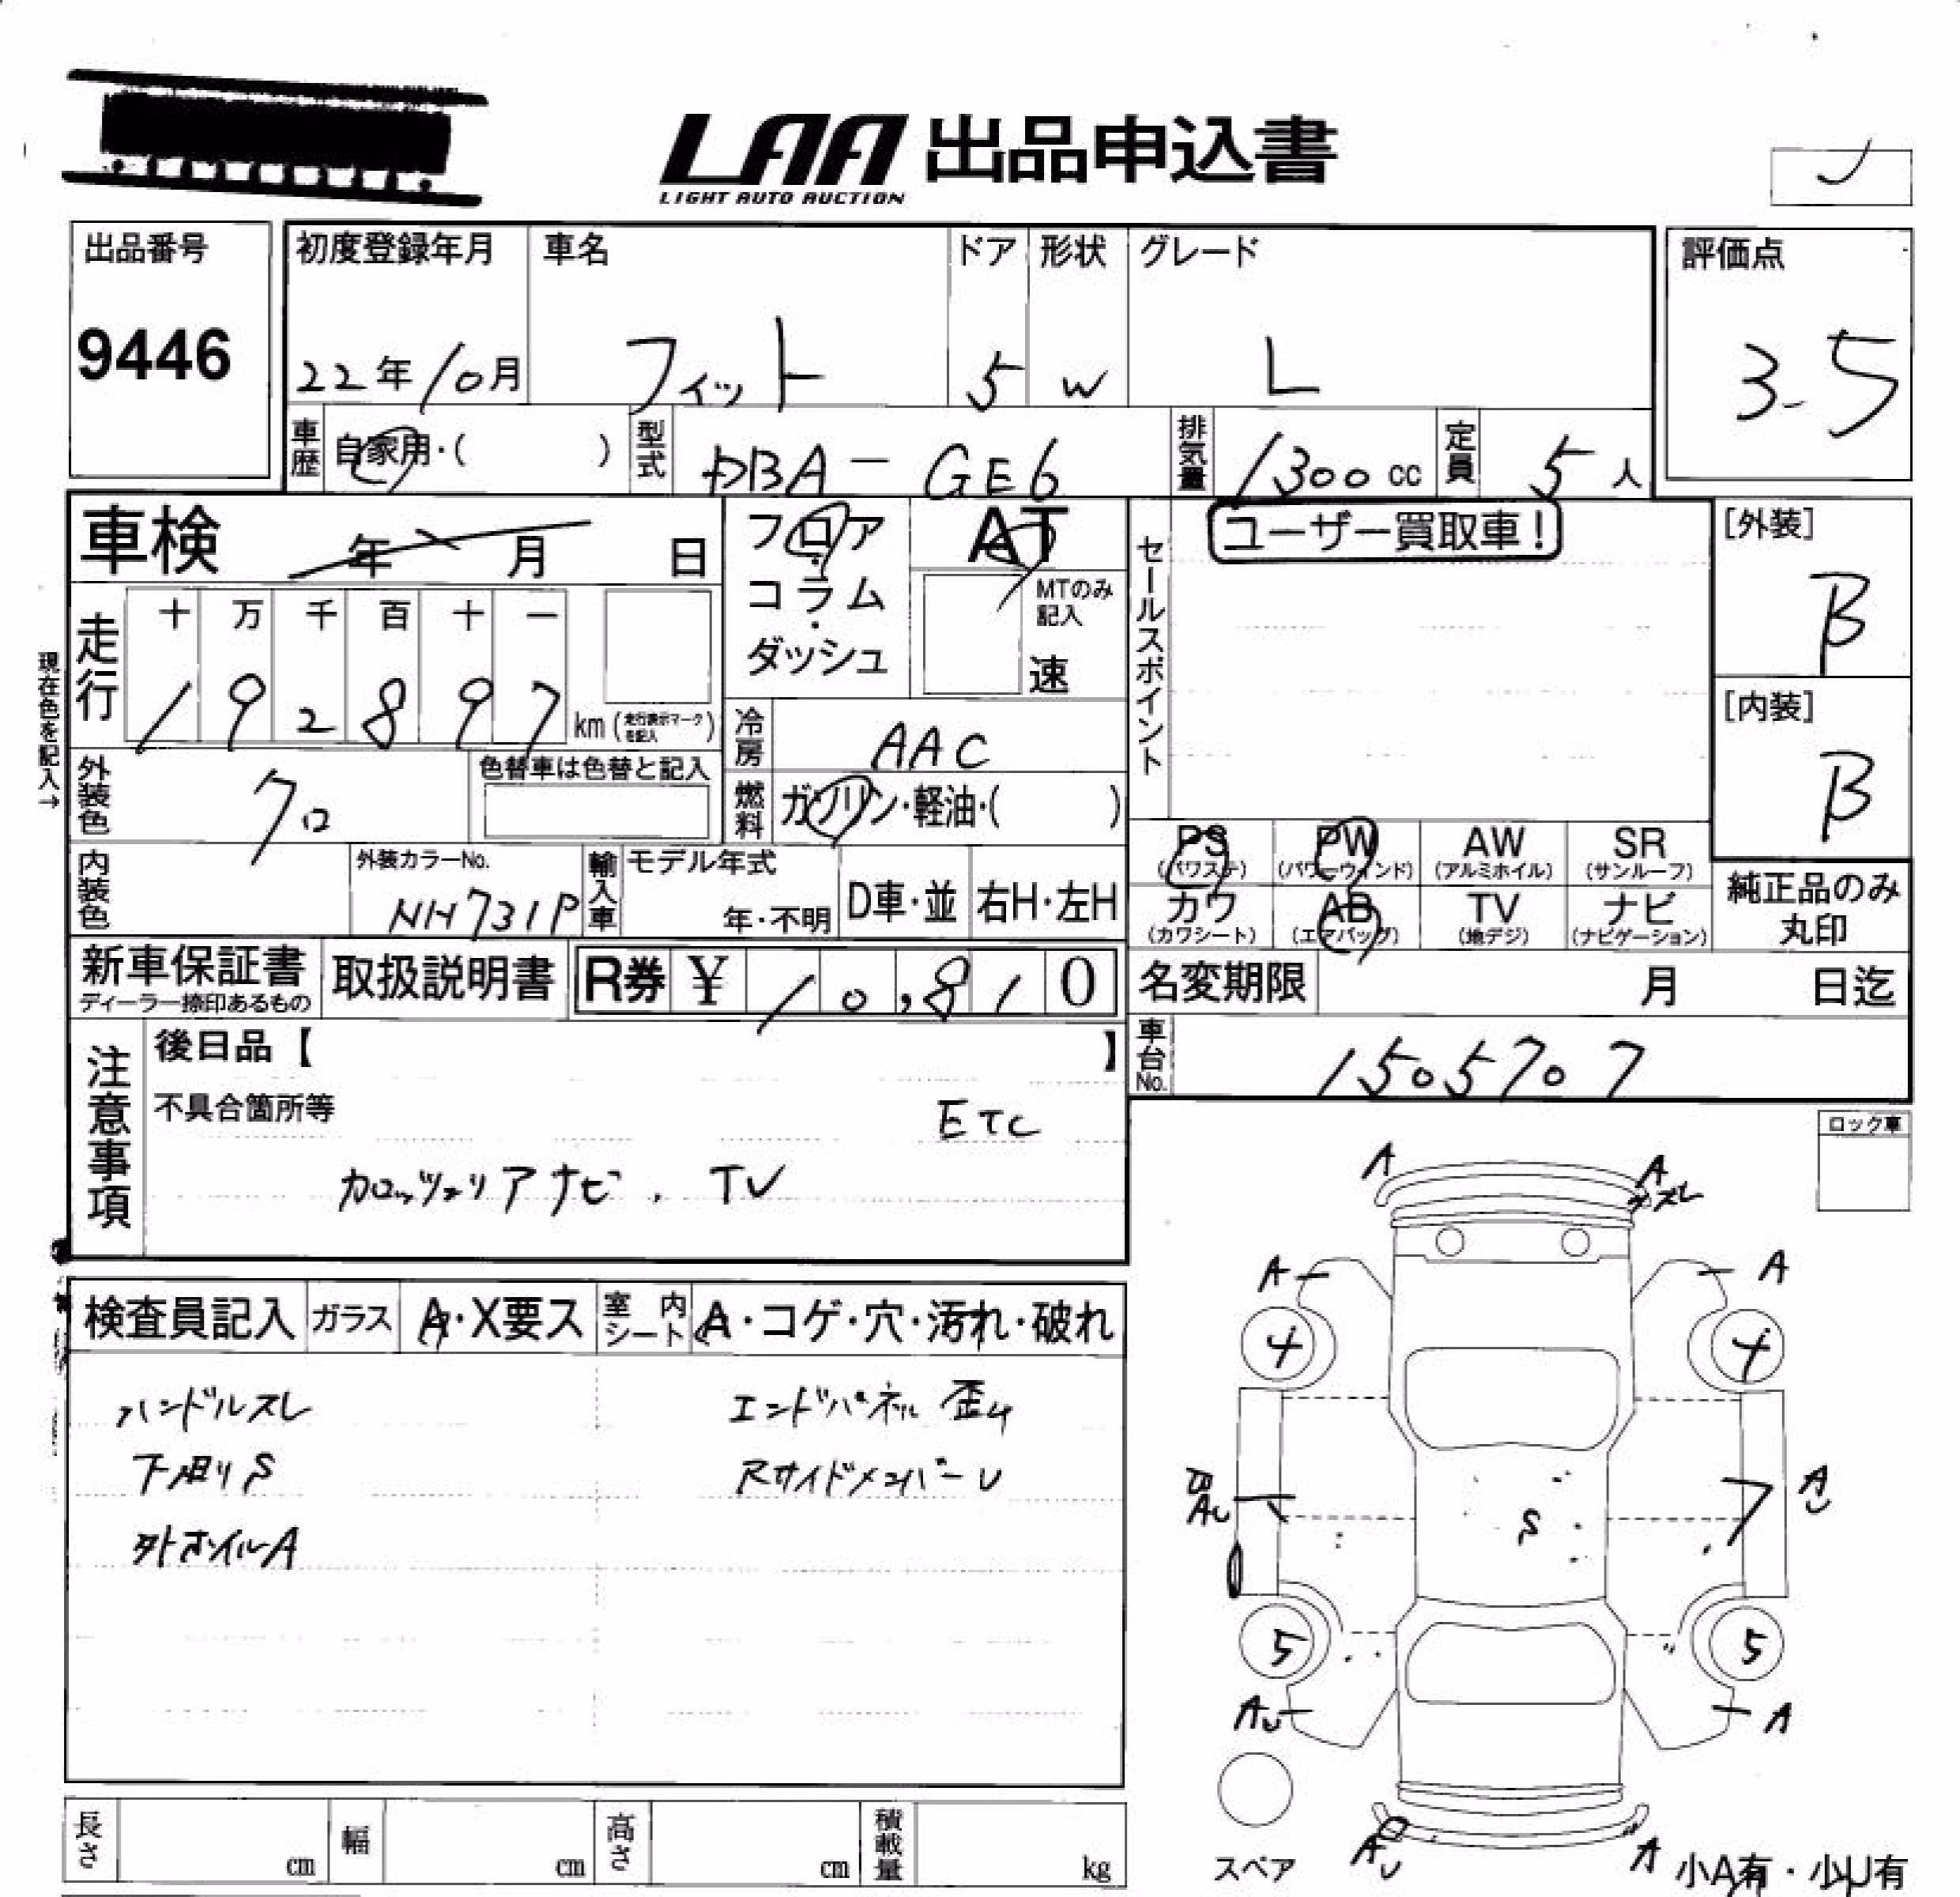 LAA 出品申込書
LIGHT AUTO AUCTION
出品番号
9446
初度登録年月
22年10月
車名
フィット
ドア
5
形状
W
グレード
L
評価点
3.5
車歴
自家用・( )
型式
DBA-GE6
排気量
1300cc
定員
5人
車検 年 月 日
フロア・コラム・ダッシュ
AT
MTのみ記入
速
セールスポイント
ユーザー買取車!
[外装]
B
[内装]
B
現在色を記入→
走行
十 万 千 百 十 一
1 9 2 8 9 7 km (走行表示マークを記入)
冷房
AAC
外装色
クロ
色替車は色替と記入
燃料
ガソリン・軽油・( )
PS (パワステ)
PW (パワーウィンド)
AW (アルミホイル)
SR (サンルーフ)
カワ (カワシート)
AB (エアバッグ)
TV (地デジ)
ナビ (ナビゲーション)
純正品のみ丸印
内装色
外装カラーNo.
NH731P
輸入車
モデル年式
年・不明
D車・並
右H・左H
新車保証書
ディーラー捺印あるもの
取扱説明書
R券 ¥ 10,810
名変期限 月 日迄
車台No.
1505707
注意事項
後日品【 】
不具合箇所等
ETC
カロッツェリアナビ、TV
ロック車
検査員記入
ガラス
A・X要ス
室内シート
A・コゲ・穴・汚れ・破れ
ハンドルスレ
エンドパネル 歪み
下廻りS
RサイドメンバーU
外ホイルA
A
A
スレ
A
A
4
4
B
AU
S
AU
5
5
AU
A
AU
A
スペア
小A有・小U有
長さ cm
幅 cm
高さ cm
積載量 kg